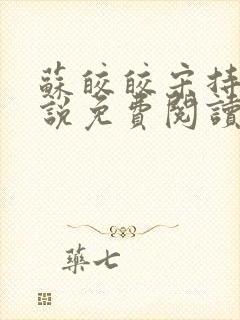 蘇皎皎宋持
說免費閱讀
藥七